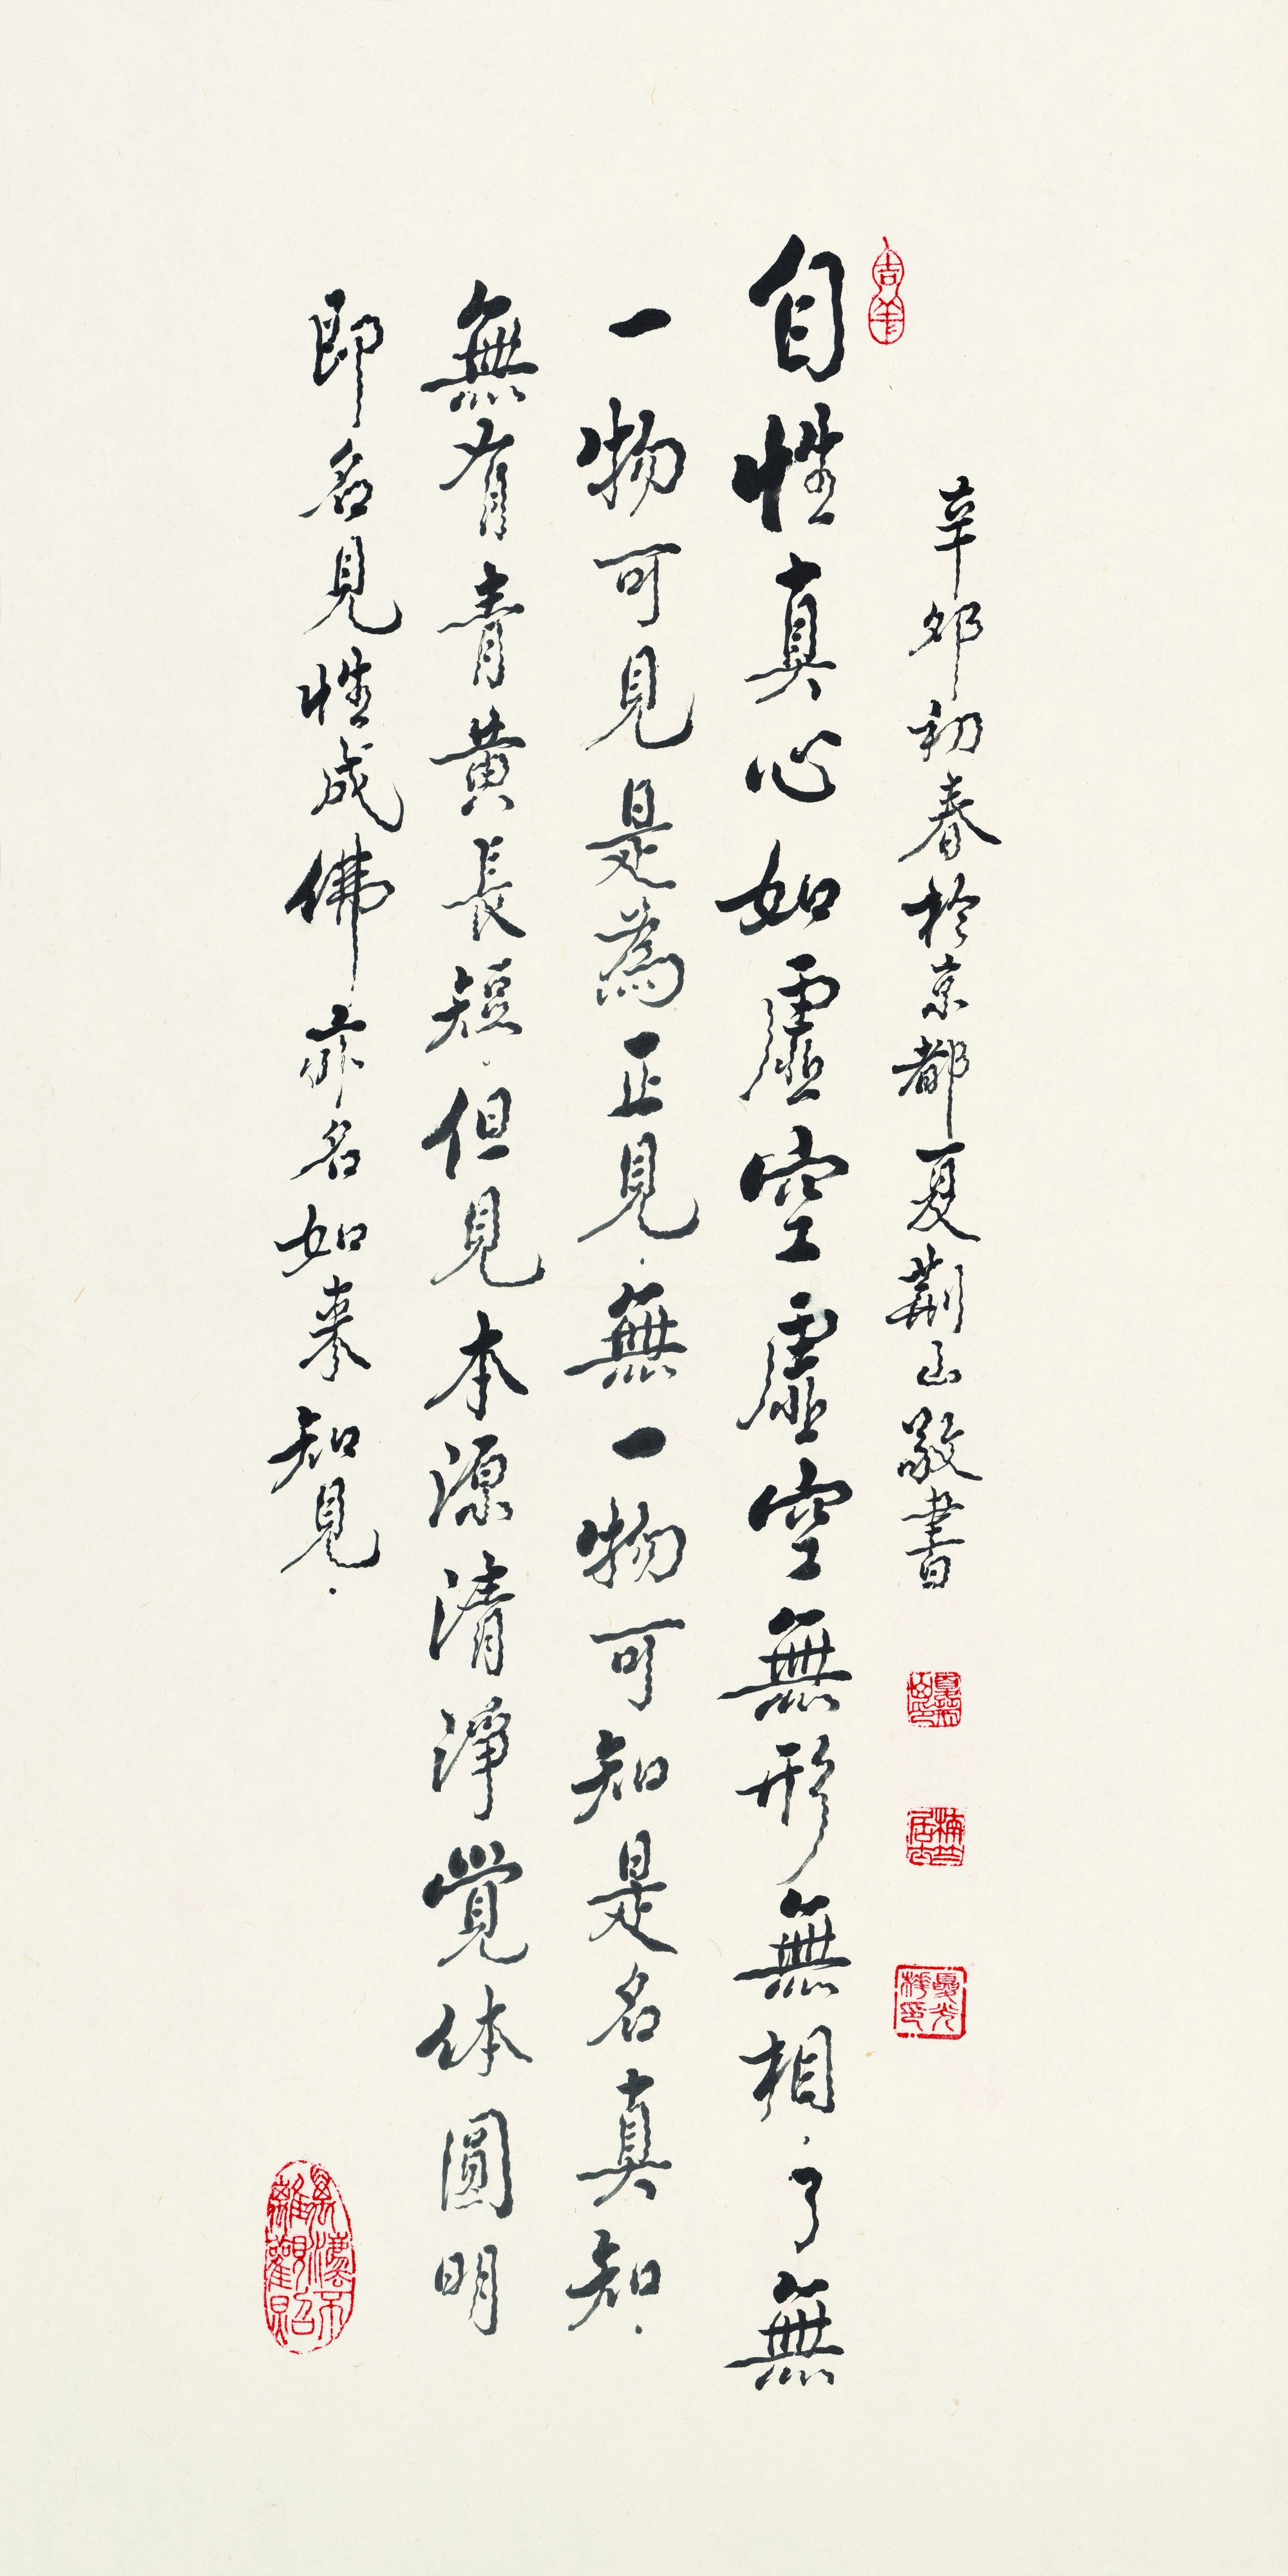 吉羊
辛卯初春於京都夏荊山敬書
自性真心如虛空虛空無形無相.了無
一物可見是為正見.無一物可知是名真知.
無有青黃長短.但見本源清淨覺体圓明
即名見性成佛亦名如來知見.